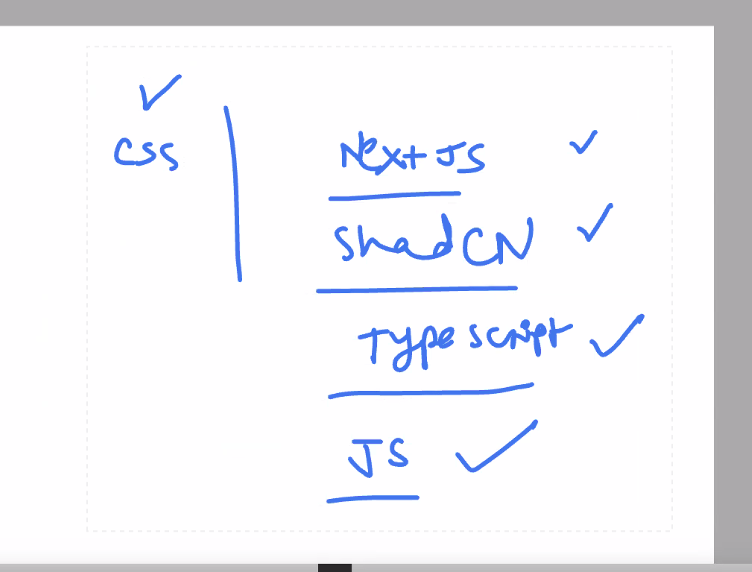 CSS
Next JS
ShadCN
Typescript
JS